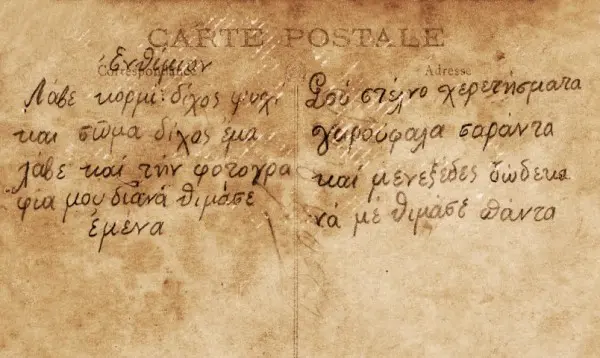 CARTE POSTALE
Correspondance
Adresse
Ενθίμιον
Λάβε κορμί δίχος ψυχί
και σῶμα δίχος ἐμα
λάβε καί τήν φοτογρα
φία μου διανά θιμάσε
ἐμένα
Σού στέλνο χερετήσματα
γαρούφαλα σαράντα
καί μενεξέδες δώδεκα
νά μέ θιμάσε πάντα